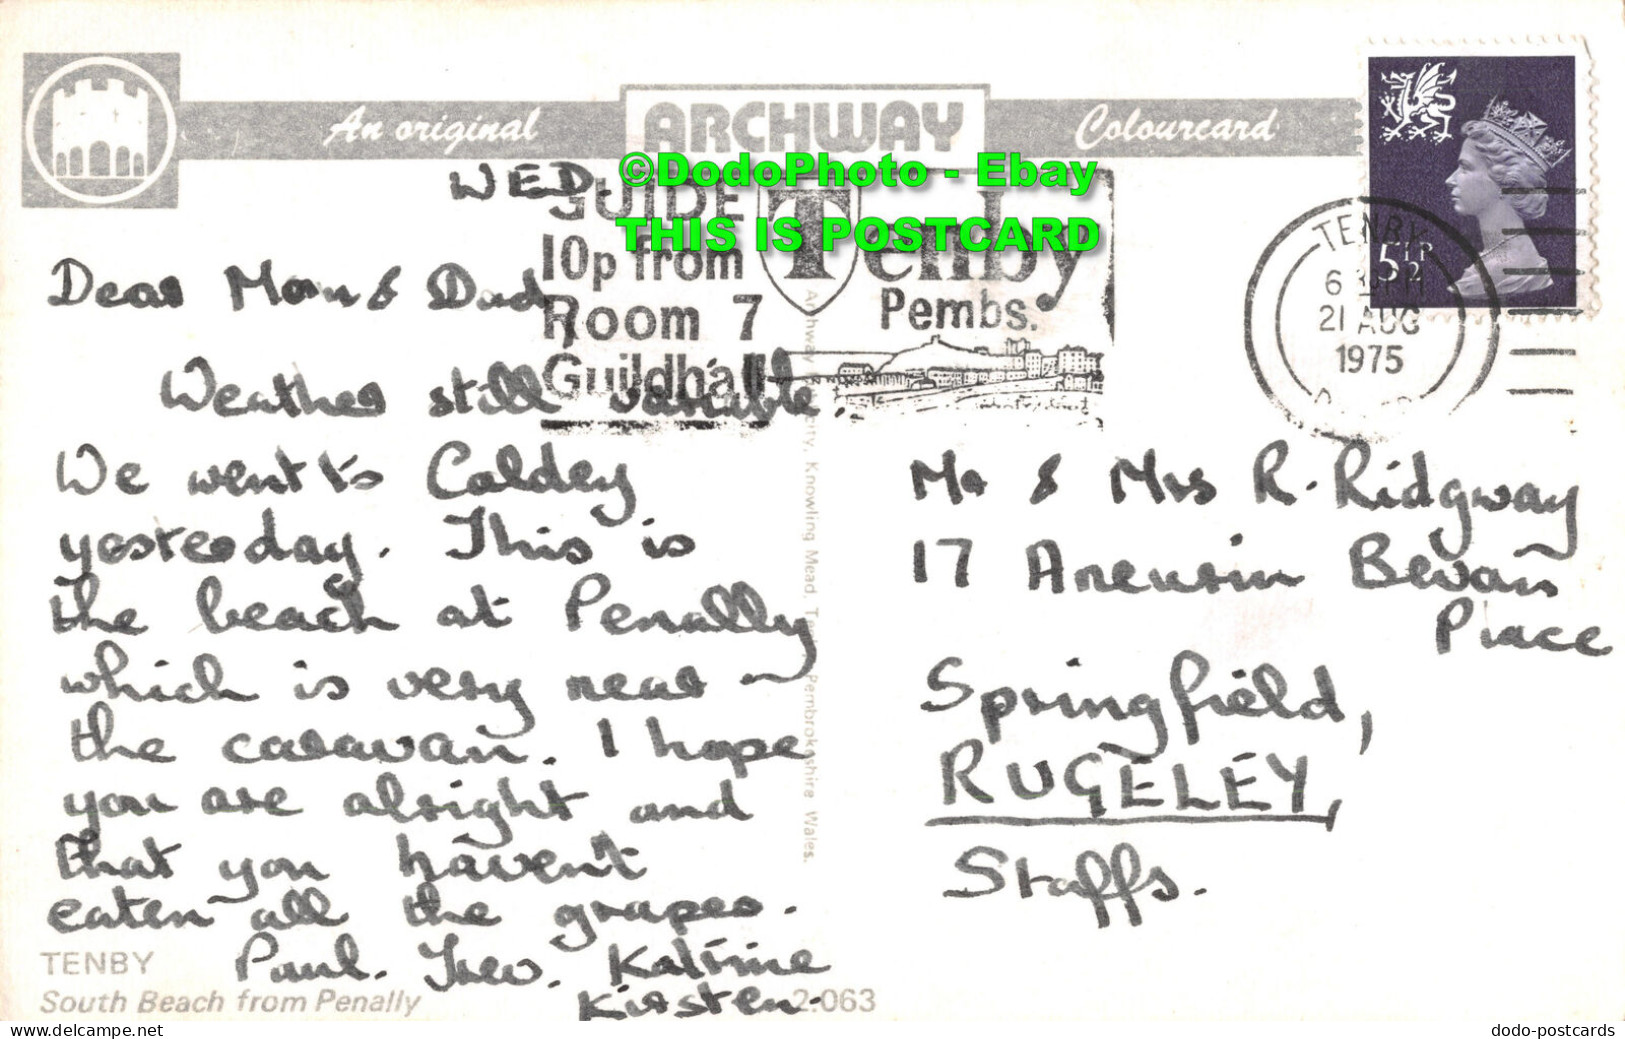 An original ARCHWAY Colourcard
©DodoPhoto - Ebay
THIS IS POSTCARD
WED.
GUIDE
10p from
Room 7
Guildhall
Tenby
Pembs.
TENBY
5½P
21 AUG
1975
Dear Mom & Dad,
Weather still variable.
We went to Caldey
yesterday. This is
the beach at Penally
which is very near
the caravan. I hope
you are alright and
that you haven't
eaten all the grapes.
Paul. Trev. Katrine
Kirsten.
Mr & Mrs R. Ridgway
17 Aneurin Bevan
Place
Springfield,
RUGELEY,
Staffs.
Knowling Mead, Pembrokeshire Wales.
TENBY
South Beach from Penally
2.063
dodo-postcards